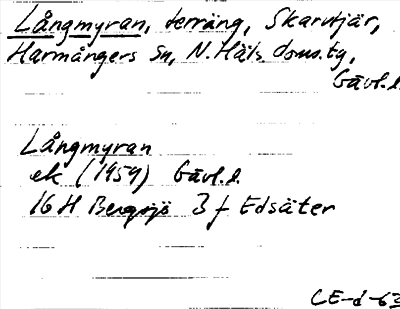 Långmyran, terräng, Skarvtjär,
Harmångers sn, N. Häls. doms. tg,
Gävl. l.
Långmyran
ek (1959) Gävl. l.
16 H Bergsjö 3 f Edsäter
CE-d-63